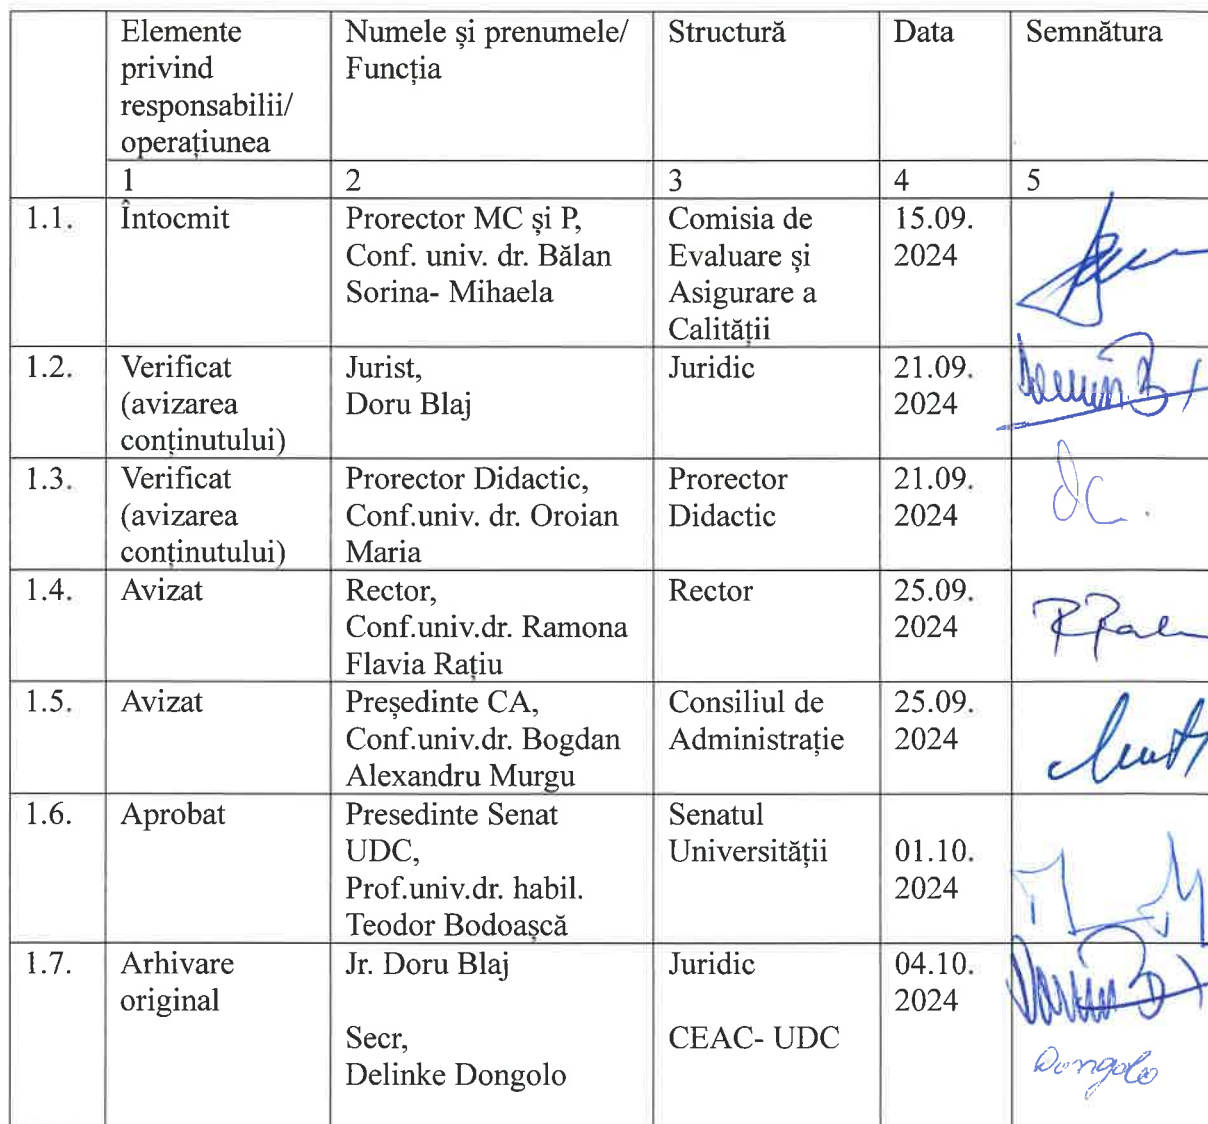 Elemente privind responsabilii/ operațiunea
Numele și prenumele/ Funcția
Structură
Data
Semnătura
1
2
3
4
5
1.1.
Întocmit
Prorector MC și P,
Conf. univ. dr. Bălan
Sorina- Mihaela
Comisia de
Evaluare și
Asigurare a
Calității
15.09.
2024
1.2.
Verificat
(avizarea
conținutului)
Jurist,
Doru Blaj
Juridic
21.09.
2024
1.3.
Verificat
(avizarea
conținutului)
Prorector Didactic,
Conf.univ. dr. Oroian
Maria
Prorector
Didactic
21.09.
2024
1.4.
Avizat
Rector,
Conf.univ.dr. Ramona
Flavia Rațiu
Rector
25.09.
2024
1.5.
Avizat
Președinte CA,
Conf.univ.dr. Bogdan
Alexandru Murgu
Consiliul de
Administrație
25.09.
2024
1.6.
Aprobat
Presedinte Senat
UDC,
Prof.univ.dr. habil.
Teodor Bodoașcă
Senatul
Universității
01.10.
2024
1.7.
Arhivare
original
Jr. Doru Blaj
Secr,
Delinke Dongolo
Juridic
CEAC- UDC
04.10.
2024
Dongolo